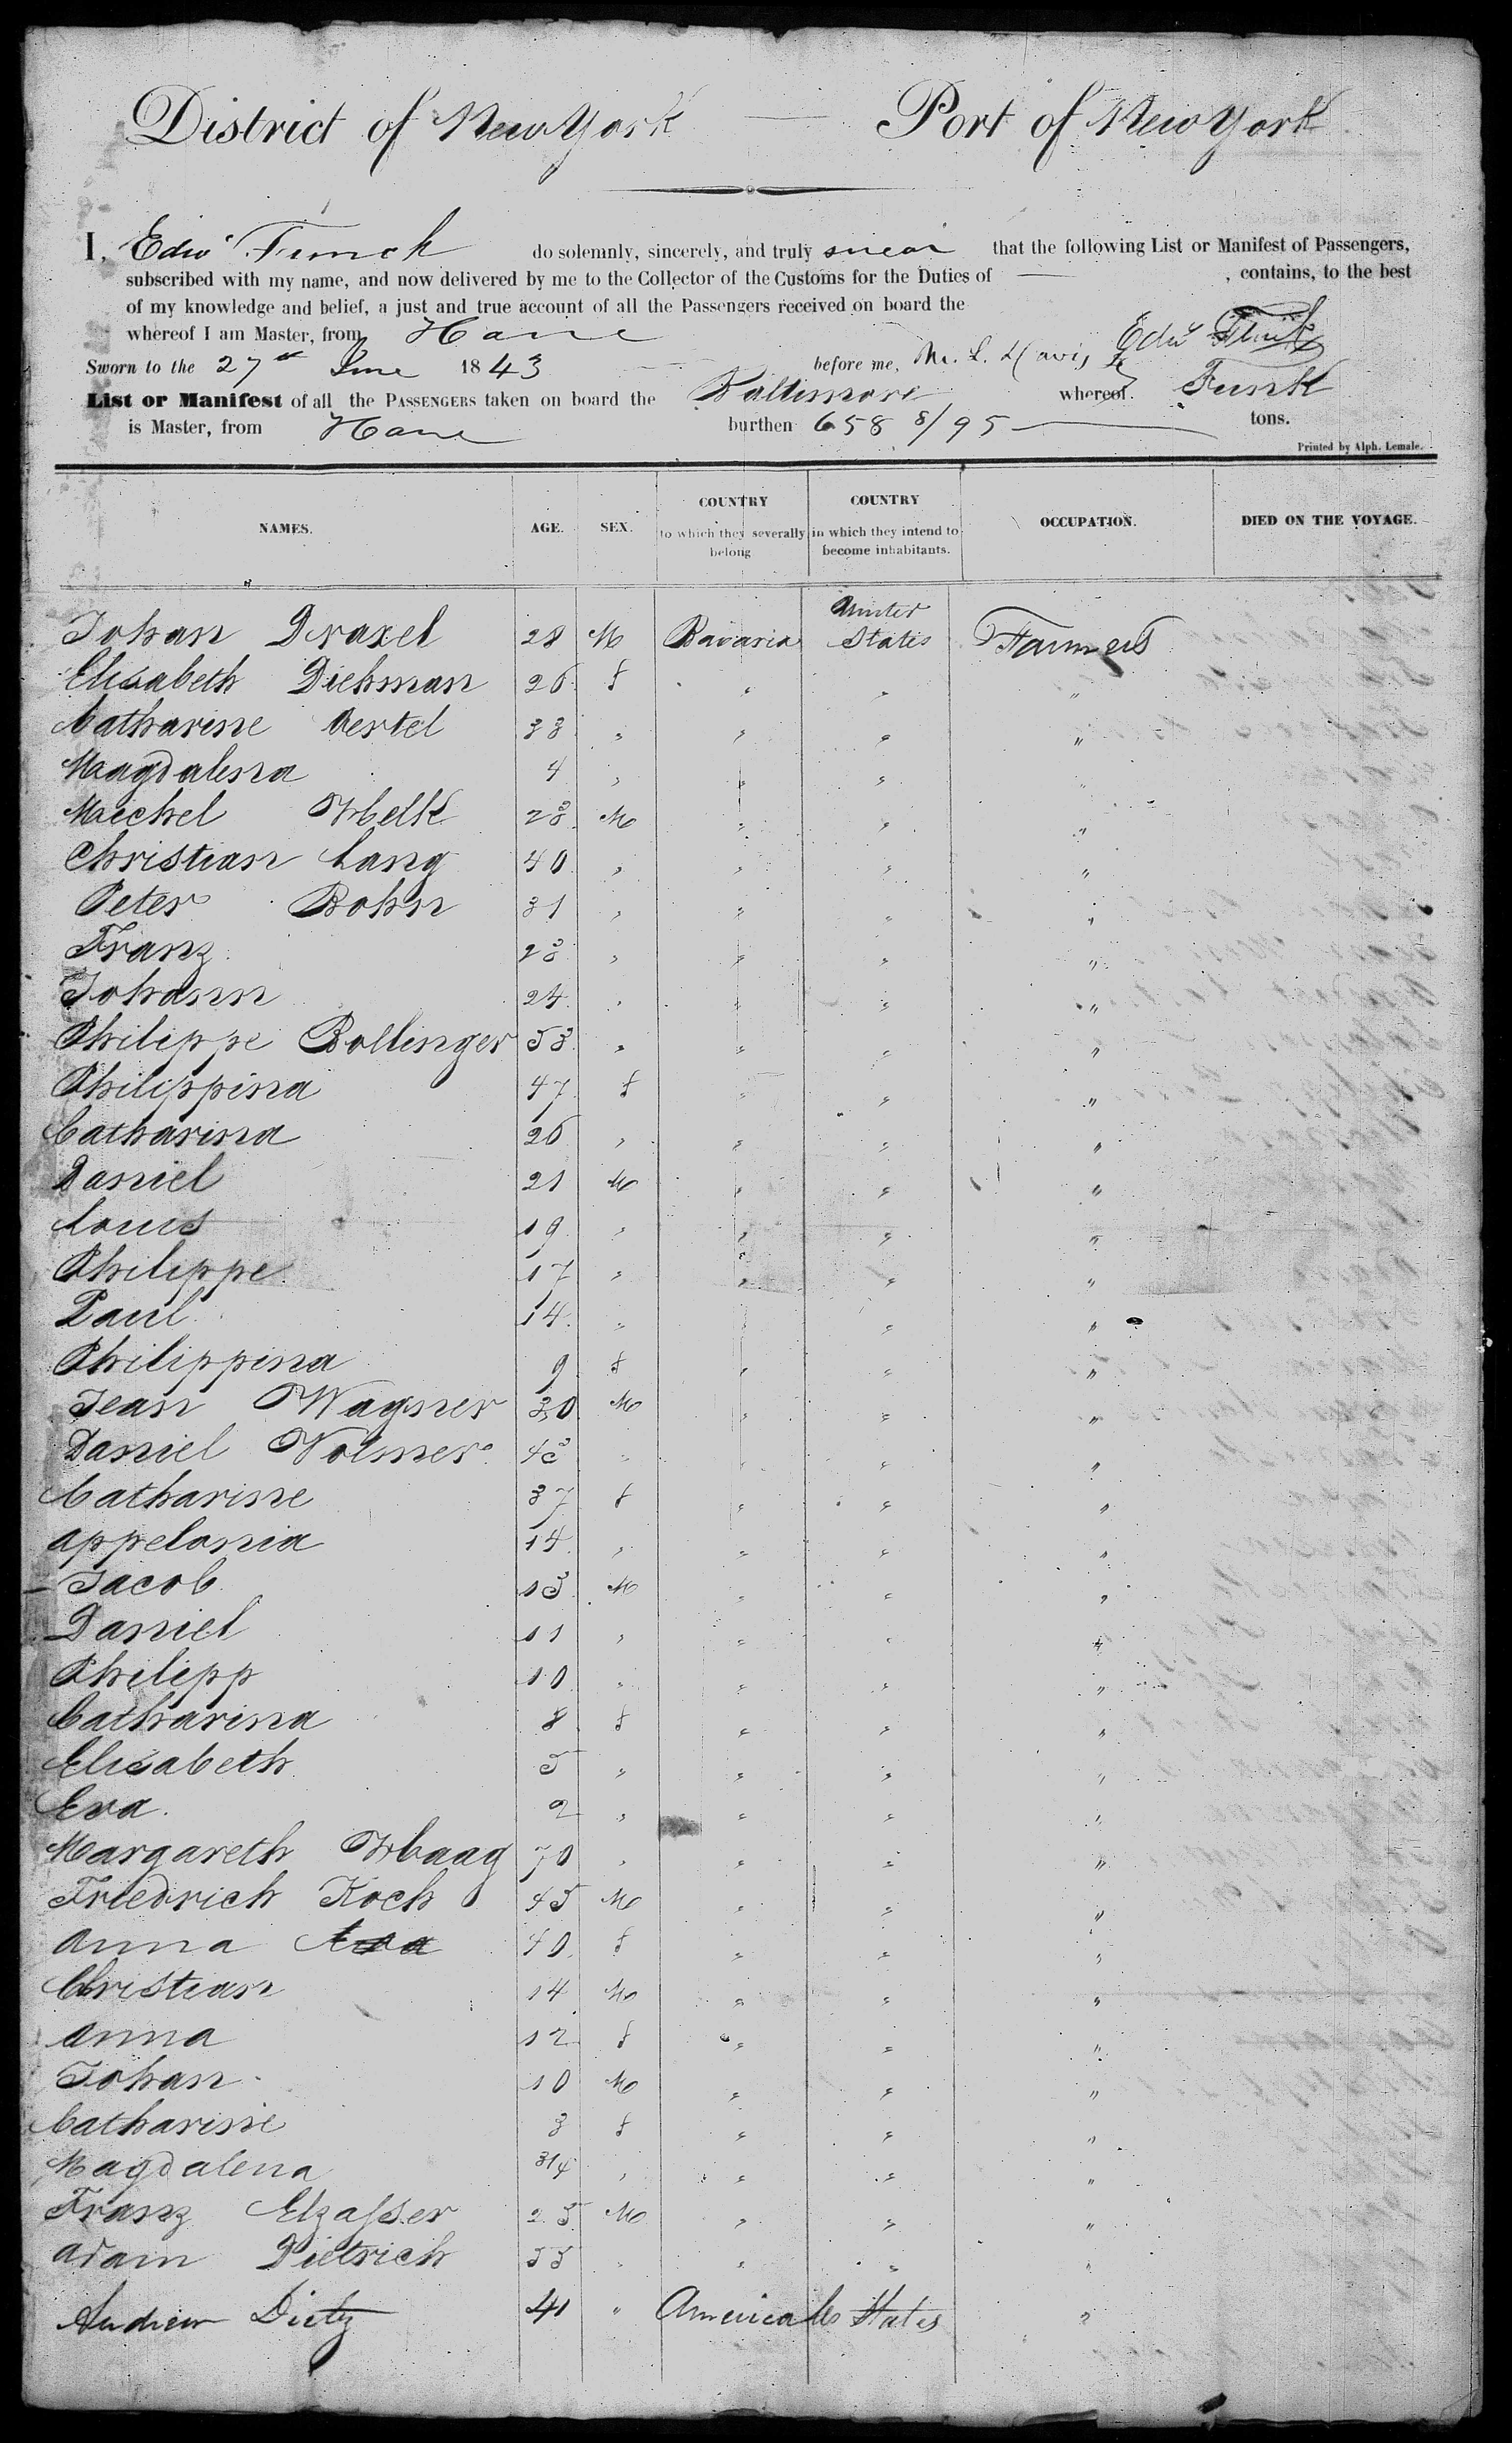 District of New York Port of New York
I, Edw Funck do solemnly, sincerely, and truly swear that the following List or Manifest of Passengers,
subscribed with my name, and now delivered by me to the Collector of the Customs for the Duties of , contains, to the best
of my knowledge and belief, a just and true account of all the Passengers received on board the
whereof I am Master, from Havre Edw Funck
Sworn to the 27th June 1843 before me, M. L. Davis
List or Manifest of all the PASSENGERS taken on board the Baltimore whereof Funck
is Master, from Havre burthen 658 8/95 tons.
Printed by Alph. Lemale.
NAMES. AGE. SEX. COUNTRY to which they severally belong COUNTRY in which they intend to become inhabitants. OCCUPATION. DIED ON THE VOYAGE.
Johan Draxel 28 M Bavaria United States Farmers
Elisabeth Diehman 26 f " " "
Catharine Oertel 33 " " " "
Magdalena 4 " " " "
Michel Welk 23 M " " "
Christian Lang 40 " " " "
Peter Bohn 31 " " " "
Franz 23 " " " "
Johann 24 " " " "
Philippe Bollinger 53 " " " "
Philippina 47 f " " "
Catharina 26 " " " "
Daniel 21 M " " "
Louis 19 " " " "
Philippe 17 " " " "
Paul 14 " " "
Philippina 9 f " " "
Jean Wagner 30 M " " "
Daniel Volmer 43 " " " "
Catharine 37 f " " "
Appelonia 14 " " " "
Jacob 13 M " " "
Daniel 11 " " " "
Philipp 10 " " " "
Catharina 8 f " " "
Elisabeth 5 " " " "
Eva 2 " " " "
Margareth Waag 70 " " " "
Friedrich Koch 45 M " " "
Anna 40 f " " "
Christian 14 M " " "
Anna 12 f " " "
Johan 10 M " " "
Catharine 3 f " " "
Magdalena 3/4 " " " "
Franz Elzasser 25 M " " "
Adam Dietrich 55 " " " "
Andrew Dietz 41 " America U States "